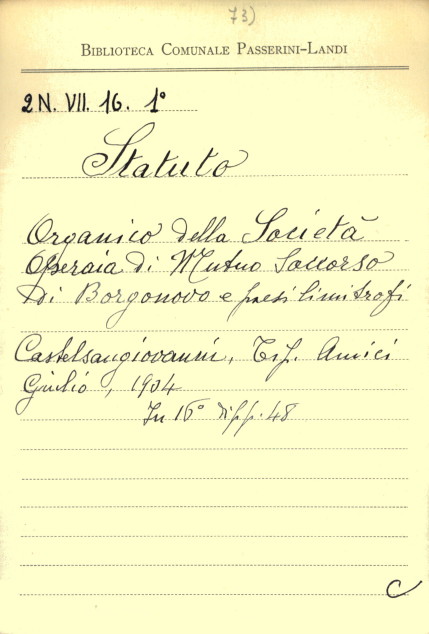 73)
BIBLIOTECA COMUNALE PASSERINI-LANDI
2 N. VII. 16. 1°
Statuto
Organico della Società
Operaia di Mutuo Soccorso
di Borgonovo e paesi limitrofi
Castelsangiovanni, Tip. Amici
Giulio, 1904
In 16° di pp. 48
C